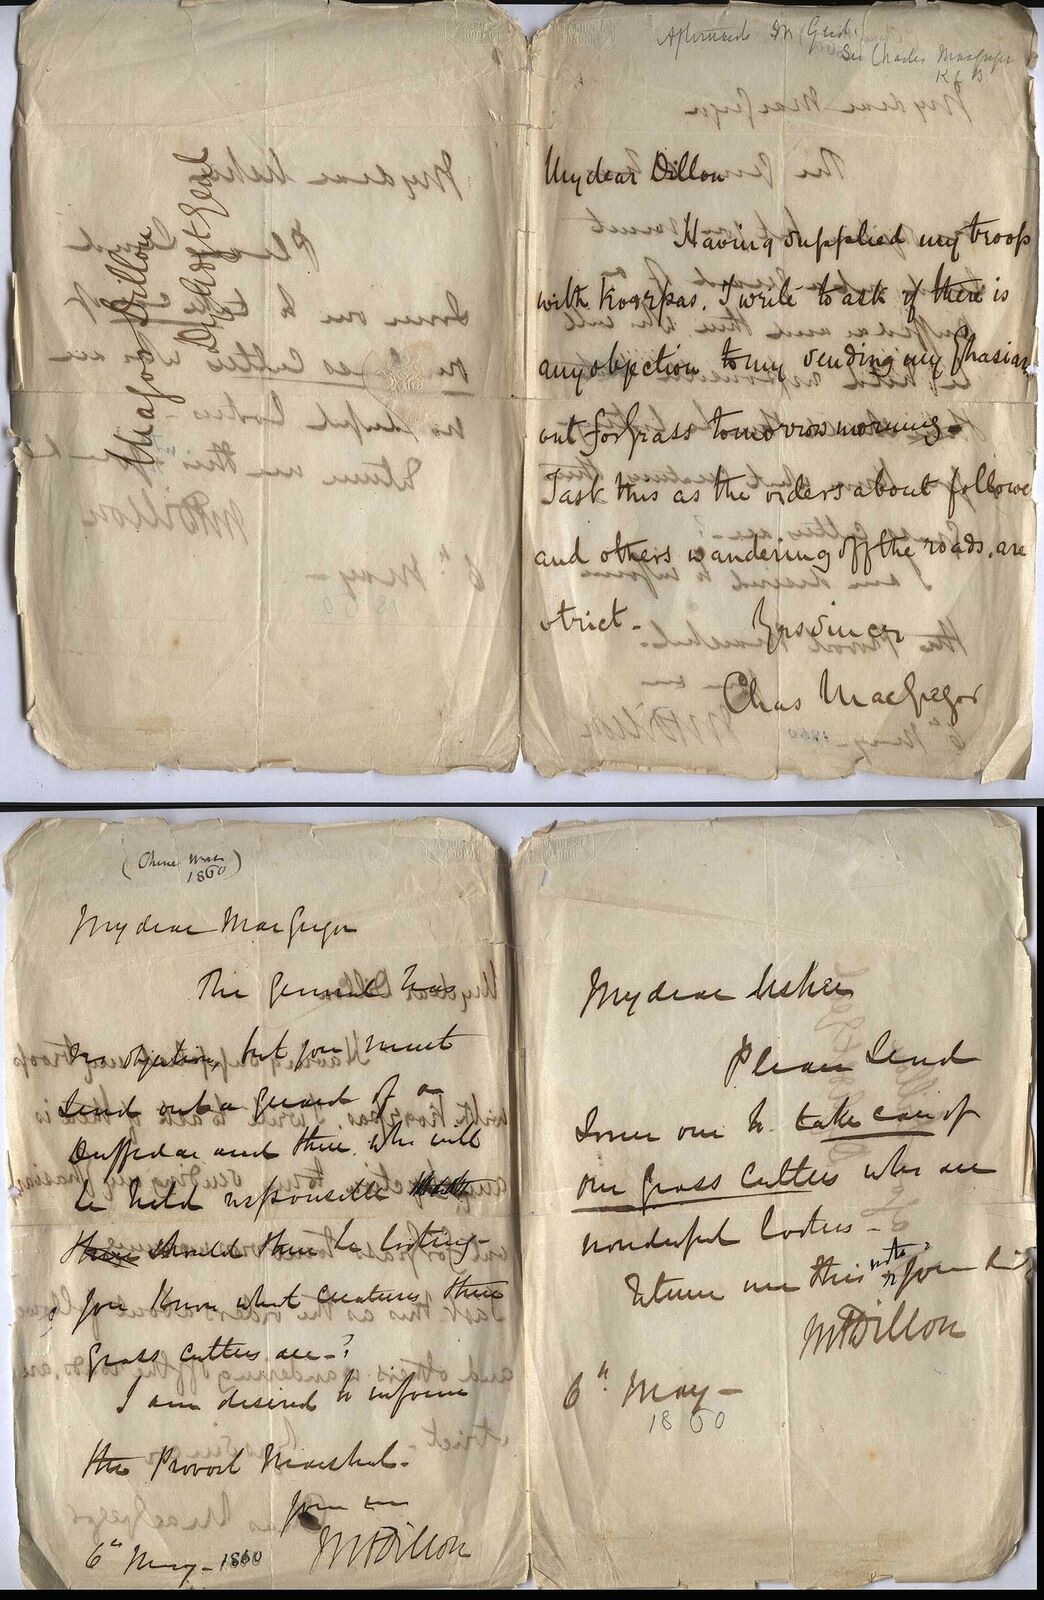 Major Dillon
Afterwards
Sir Charles MacGregor
K C B
My dear Dillon
Having supplied my troop
with Koorpas, I write to ask if there is
any objection to my sending my Ghasiar
out for grass tomorrow morning -
I ask this as the orders about followe
and others wandering off the roads, are
strict -
Chas MacGregor
(China War
1860)
My dear MacGregor
The General has
no objection, but you must
send out a guard of a
Duffedar and three who will
be held responsible
should there be looting -
you know what creatures these
grass cutters are - ?
I am desired to inform
the Provost Marshal -
MDillon
6th May - 1860
My dear
Please send
some one to take care of
our grass cutters who are
wonderful looters -
Return me this note
MDillon
6th May -
1860